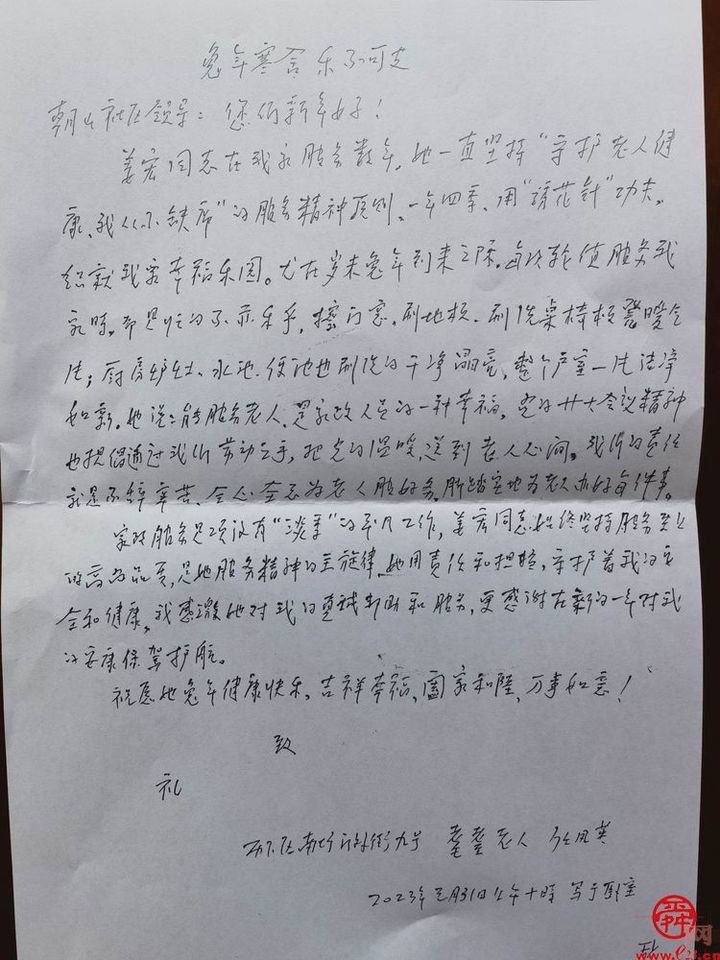 兔年寒舍乐不可支
朝山社区领导：您们新年好！
姜宏同志在我家服务数年，她一直坚持“守护老人健
康、我们不缺席”的服务精神原则。一年四季、用“绣花针”功夫，
织就我家幸福乐园。尤在岁末兔年到来之际。每次轮值服务我
家时，都是忙的不亦乐乎，擦门窗、刷地板、刷洗桌椅板凳
厨房炉灶、水池、便池也刷洗的干净晶亮，整个居室一片洁净
如新。她说：能服务老人、是家政人员的一种幸福。党的廿大会议精神
也提倡通过我们劳动之手，把党的温暖，送到老人心间。我们的责任
就是不辞辛苦、全心全意为老人服好务。脚踏实地为老人办好每件事。
家政服务是项没有“淡季”的平凡工作，姜宏同志始终坚持服务至上
的高尚品质，是她服务精神的主旋律，她用责任和担当，守护着我的安
全和健康。我感激她对我的真诚帮助和服务，更感谢在新的一年对我
的安康保驾护航。
祝愿她兔年健康快乐，吉祥幸福，阖家和睦，万事如意！
致
礼
街九号 耄耋老人 张凤英
2023年元月31日上午十时 写于卧室
舜网
www.e23.cn